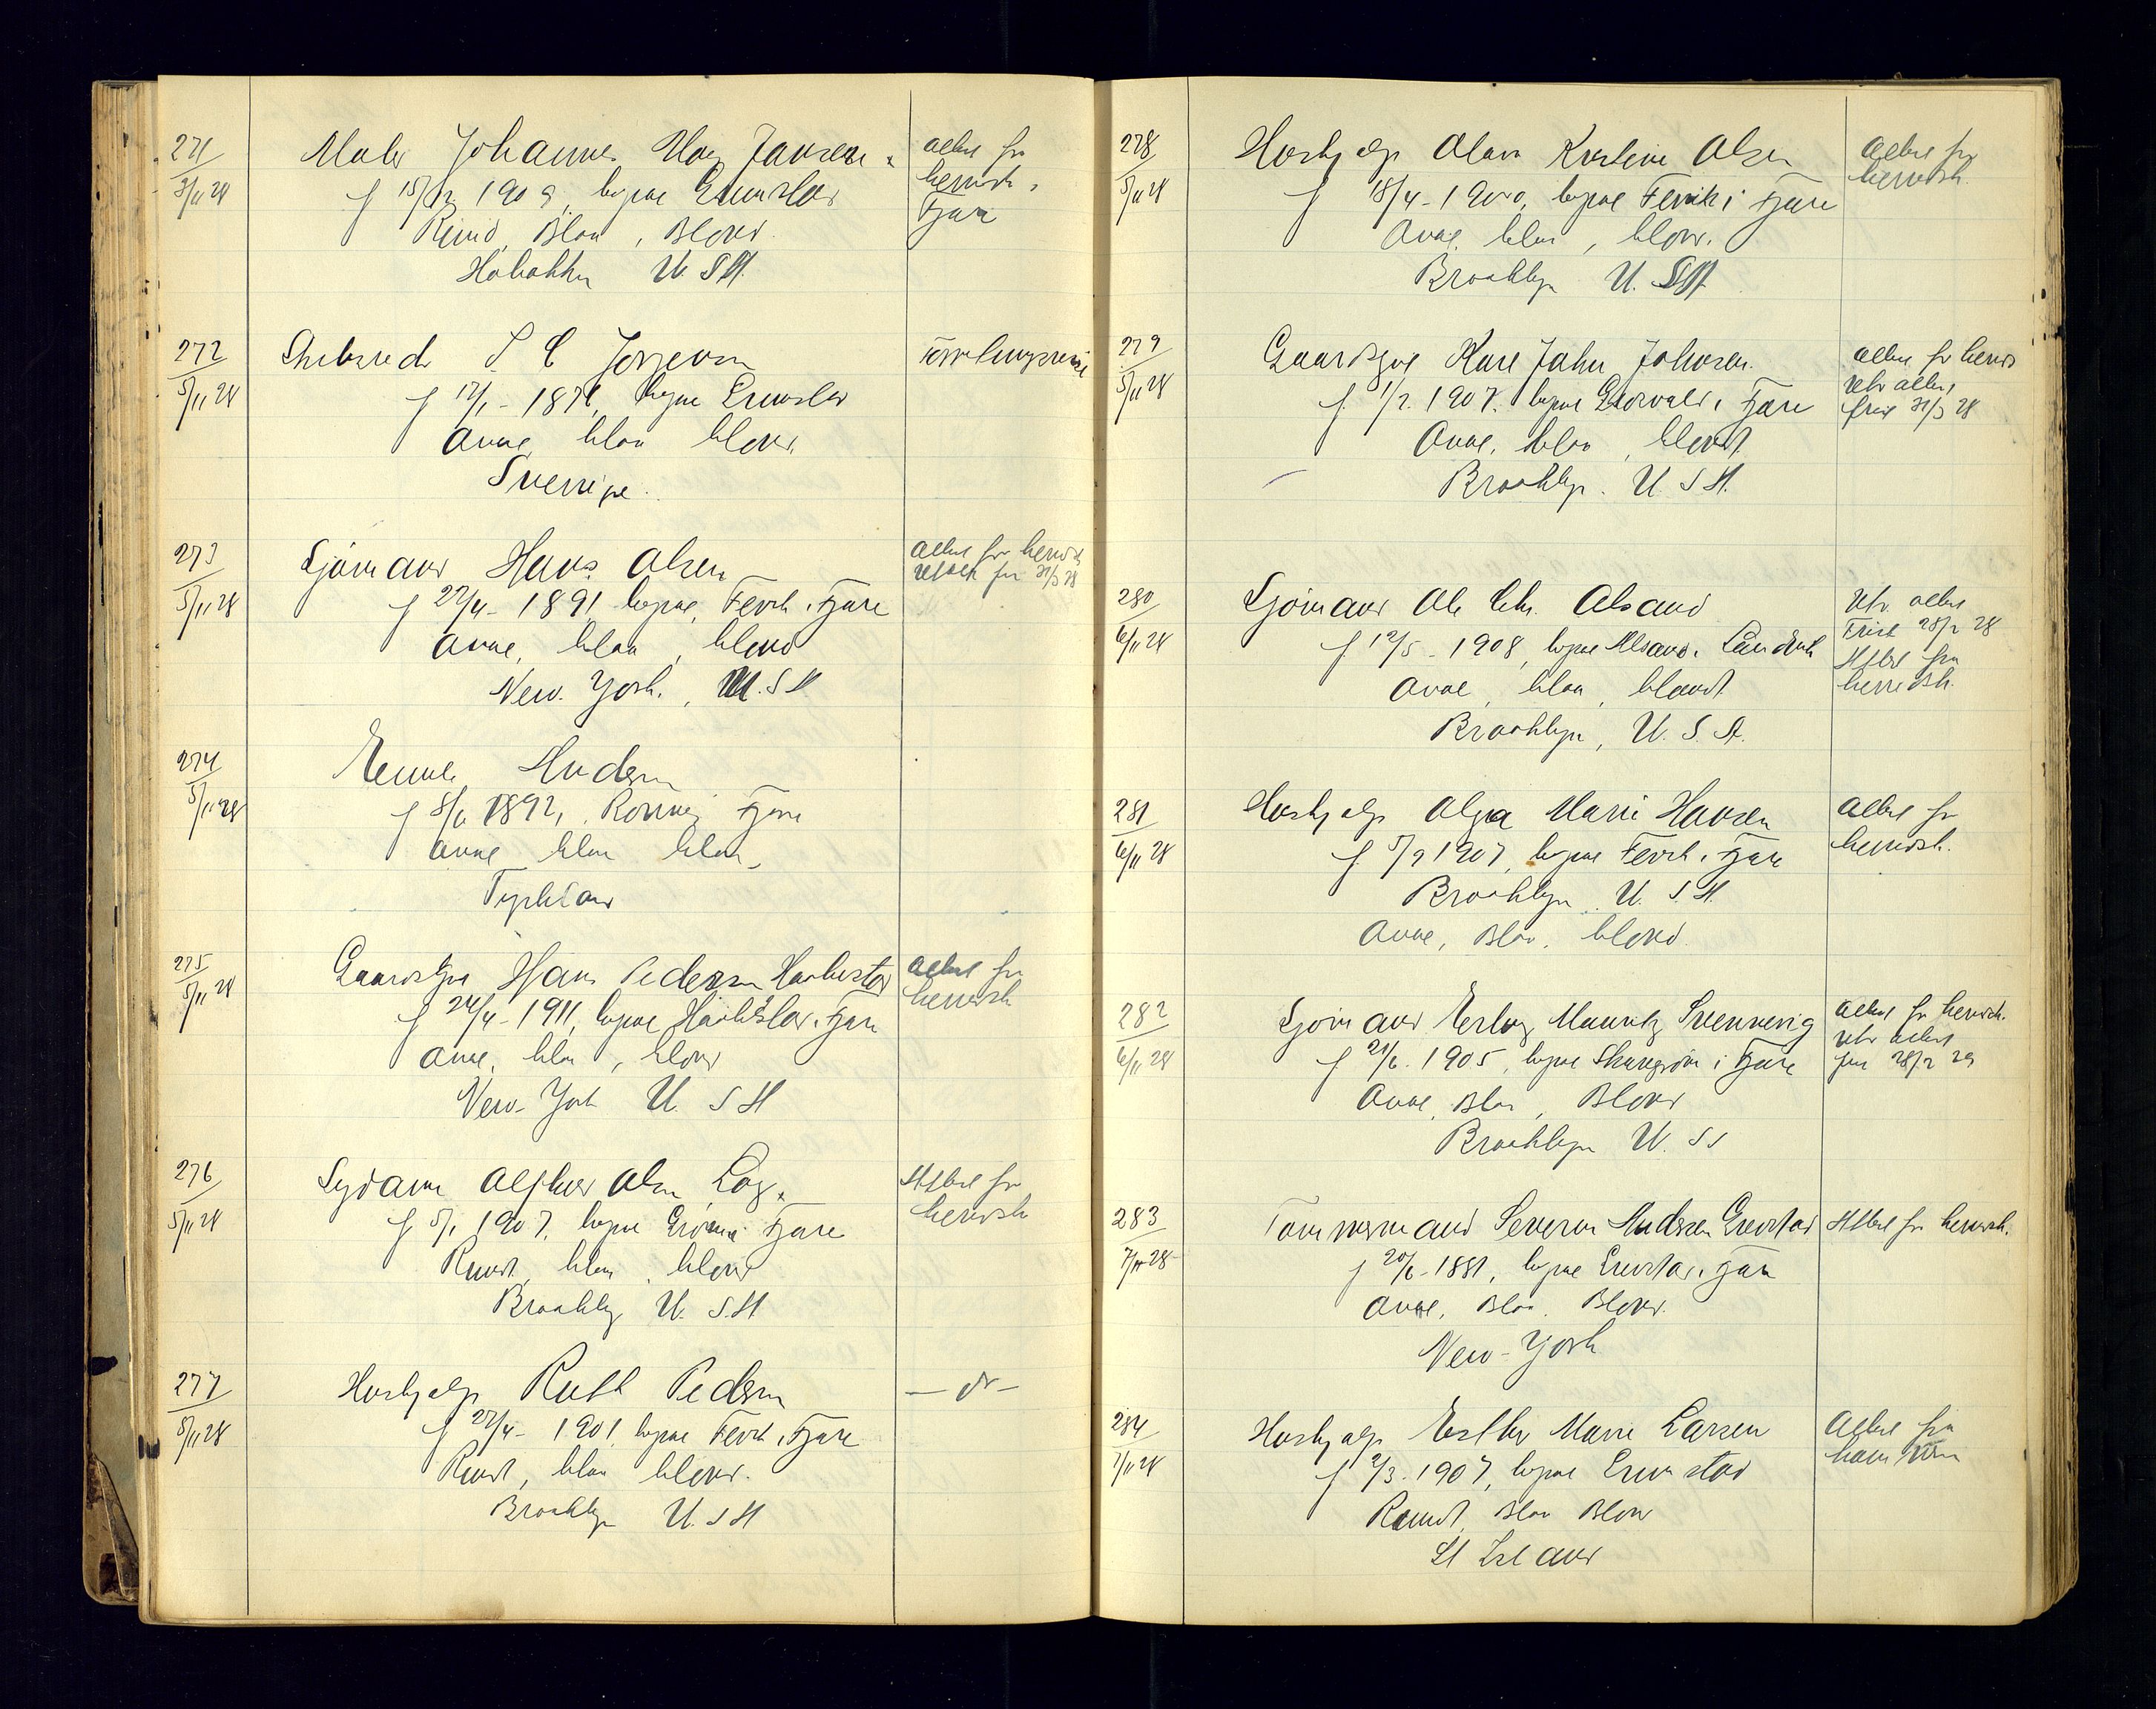 271
3/11 28
Maler Johannes Hoeg Jansen.
f 15/12 1909, bopæl Grimstad
Rund, Blaa, Blond.
Hoboken U. S A.
attest fra
herredsk.
Fjære
272
5/11 28
Skibsred J. C. Jorgensen
f 12/1 - 1876, bopæl Grimstad
Oval, blaa blond.
Sverrige.
Forretningsreise
273
5/11 28
Sjømand Hans Olsen
f 22/4 - 1891 bopæl, Fevik i Fjære
Oval, blaa, blond
New. York., U. S A
Attest fra herredsk
31/3 28
274
5/11 28
Andersen
f 8/6 1892, Fjære
Oval blaa blaa,
Tyskland
275
5/11 28
Gaardsgut Hans Pedersen
f 24/4 - 1911, bopæl i Fjære
Oval, blaa, blond
New-York U. S A
Attest fra
herredsk
276
5/11 28
Olsen
f 5/1 1907, bopæl Fjære
Rund, blaa, blond
Brooklyn U. S. A
Attest fra
herredsk
277
5/11 28
Hushjælp Ruth Pedersen
f 27/4 - 1901 bopæl Fevik i Fjære
Rund, blaa blond.
Brooklyn U. S A
— do —
278
5/11 28
Hushjælp Kristine Olsen
f 18/4 - 1900, bopæl Fevik i Fjære
Oval, blaa, blond.
Brooklyn U. S A.
Attest fra
herredsk.
279
5/11 28
Gaardsgut Kare John Johnsen.
f. 1/7. 1907. bopæl i Fjære
Oval, blaa, blondt
Brooklyn. U. S A.
Attest fra herreds
Utv attest,
frist 31/3 28
280
6/11 28
Sjømand Ole Chr. Alsand
f. 12/5 - 1908, bopæl Alsand i Landvik
Oval, blaa, blondt
Brooklyn, U. S. A.
Utv. attest
Frist 28/2 28
Attest fra
herredsk.
281
6/11 28
Hushjælp Olga Marie Hansen
f. 5/9 1907, bopæl Fevik i Fjære
Brooklyn U. S. A.
Oval, Blaa, blond.
Attest fra
herredsk.
282
6/11 28
Sjømand Erling Mauritz Svennevig
f 21/6. 1905, bopæl i Fjære
Oval, Blaa, Blond
Brooklyn U. S
Attest fra herredsk.
utv attest
28/2 29
283
7/11 28
Tømmermand Severin Andersen Grevstad
f 20/6 - 1881, bopæl Grevstad i Fjære
Oval, Blaa. Blond.
New-York
Attest fra herredsk.
284
7/11 28
Hushjælp Esther Marie Larsen
f 2/3. 1907, bopæl Grimstad
Rundt, Blaa Blond
St Island
Attest fra